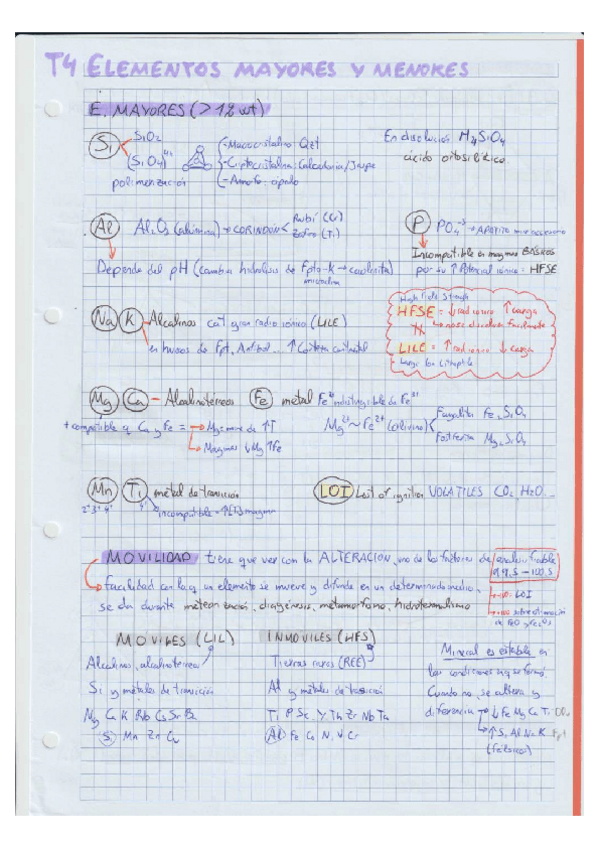 T4 ELEMENTOS MAYORES Y MENORES
E. MAYORES (>1% wt)
Si
SiO2
(SiO4)4-
polimerización
-Macrocristalino: Qtz
-Criptocristalino: Calcedonia/Jaspe
-Amorfo: ópalo
En disolución H4SiO4
ácido ortosilícico
Al Al2O3 (alúmina) → CORINDÓN
Rubí (Cr)
Zafiro (Ti)
Depende del pH (cambia hidrólisis de Fpto-K → caolinita)
microclina
P PO4 → APATITO muy necesario
Incompatible en magmas BÁSICOS
por su ↑Potencial iónico = HFSE
Na K Alcalinos cat gran radio iónico (LILE)
en huecos de Fpt, Anfibol... ↑Corteza continental
High Field Strength
HFSE = ↓rad iónico ↑carga
↳ no se disuelven fácilmente
LILE = ↑radio iónico ↓carga
Large Ion Lithophile
Mg Ca - Alcalinotérreos
+ compatible q Ca y Fe = → Mg = marc de ↑T
↳ Magmas ↓Mg ↑Fe
Fe metal Fe2+ indistinguible de Fe3+
Mg2+ ~ Fe2+ (olivino)
Fayalita Fe2SiO4
Forsterita Mg2SiO4
Mn Ti metal de transición
2+ 3+ 4+ 4+ incompatible
LOI Lost of ignition VOLATILES CO2 H2O...
MOVILIDAD tiene que ver con la ALTERACIÓN, uno de los factores de
→ Facilidad con la q un elemento se mueve y difunde en un determinado medio,
se da durante meteorización, diagénesis, metamorfismo, hidrotermalismo
99,5 - 100,5
LOI
sobreestimación
MÓVILES (LIL)
Alcalinos, alcalinotérreos
Si y metales de transición
Mg Ca K Rb Cs Sr Ba
Si Mn Zn Cu
INMÓVILES (HFS)
Tierras raras (REE)
Al y métales de transición
Ti P Sc Y Th Zr Nb Ta
Al Fe Co Ni V Cr
Mineral es estable en
las condiciones en q se formó.
Cuando no, se altera y
diferencia → ↓Fe Mg Ca Ti
↳ ↑Si Al Na K
(félsicos)